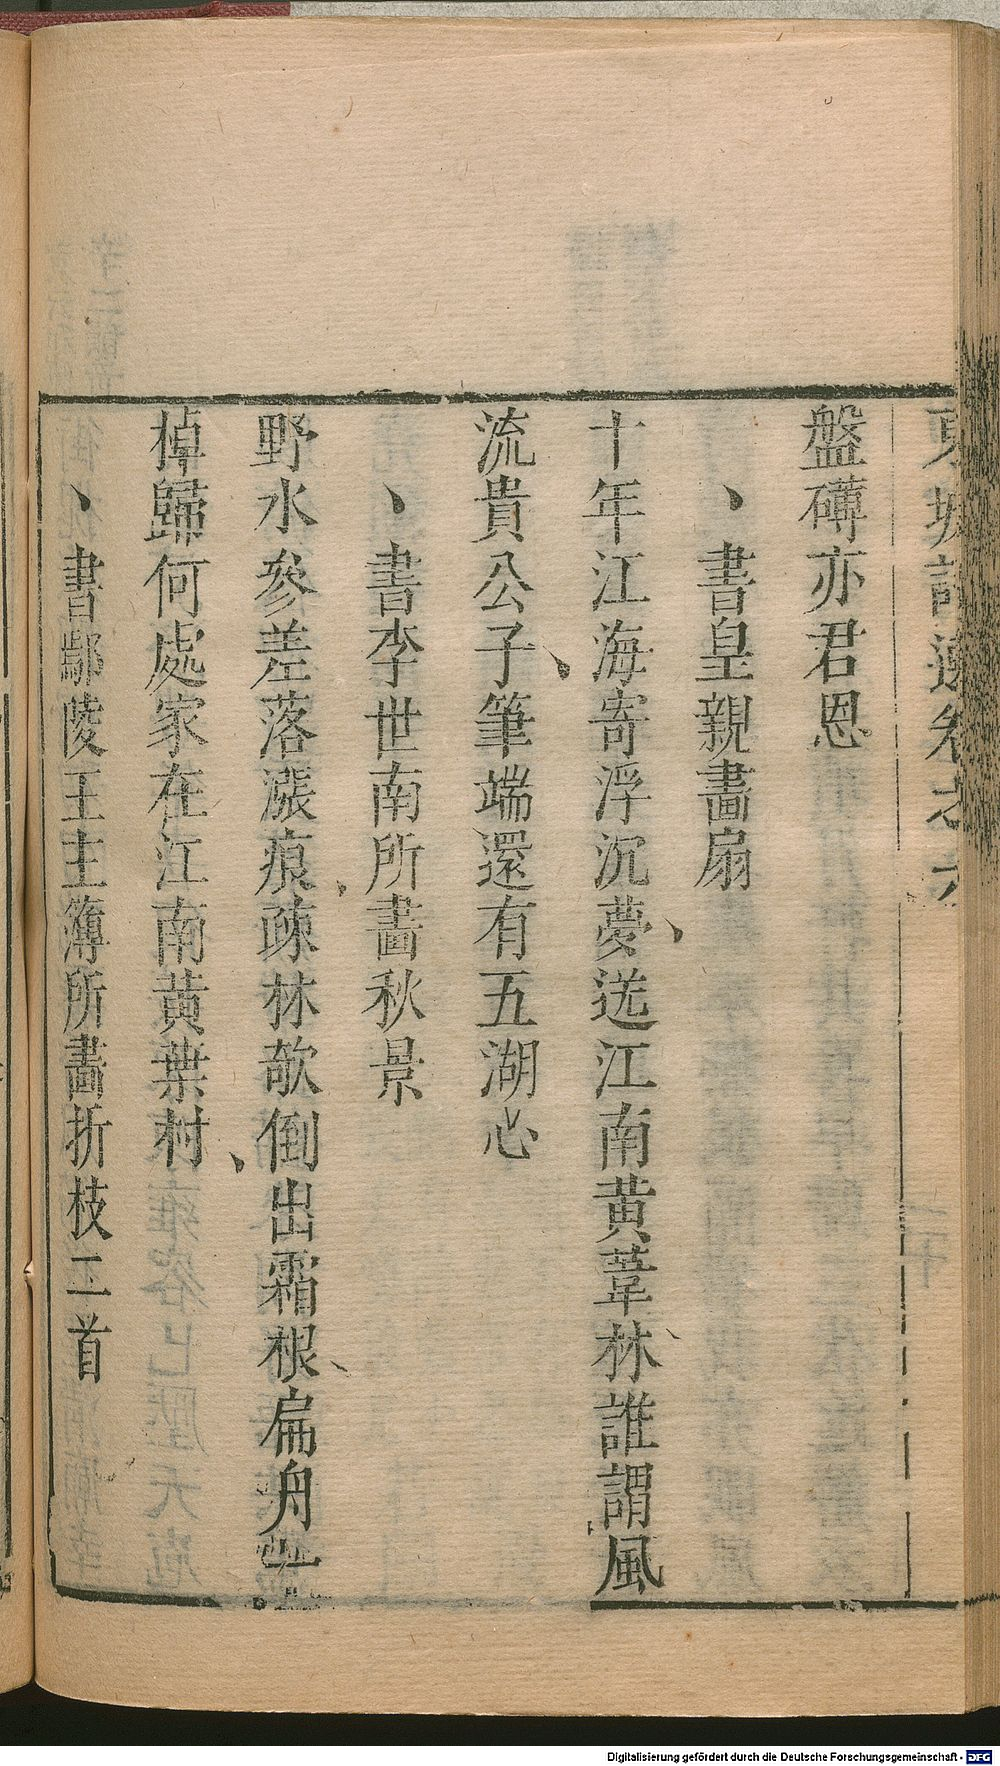 東坡詩選卷之六
盤礴亦君恩
、書皇親畫扇
十年江海寄浮沉夢遶江南黃葦林誰謂風
流貴公子筆端還有五湖心
、書李世南所畫秋景
野水參差落漲痕疎林欹倒出霜根扁舟一
棹歸何處家在江南黃葉村
、書鄢陵王主簿所畫折枝二首
Digitalisierung gefördert durch die Deutsche Forschungsgemeinschaft - DFG